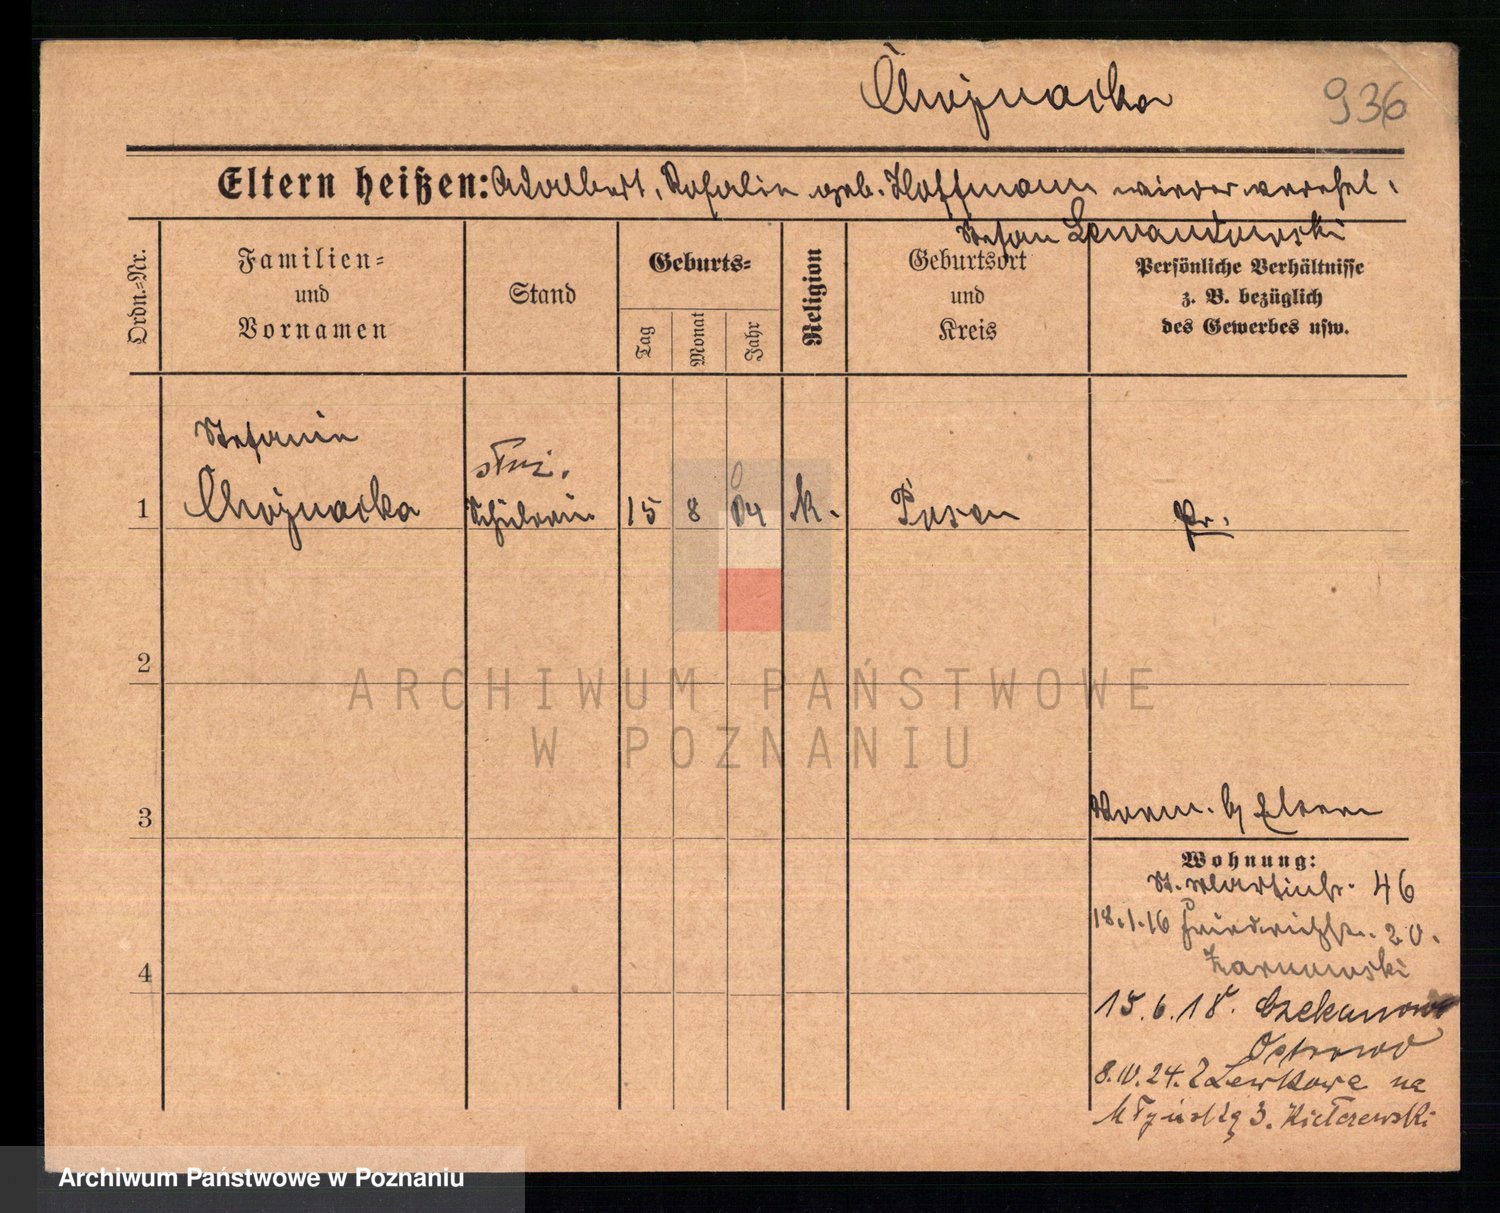 Chojnacka 936
Eltern heißen: Adalbert, Rosalie geb. Hoffmann wieder verehel.
Stefan Lewandowski
Ordn.-Nr.
Familien-
und
Vornamen
Stand
Geburts-
Tag
Monat
Jahr
Religion
Geburtsort
und
Kreis
Persönliche Verhältnisse
z. B. bezüglich
des Gewerbes usw.
Stefanie
służ.
1 Chojnacka Schülerin 15 8 04 k. Posen Pr.
2
ARCHIWUM PAŃSTWOWE
W POZNANIU
3
Vorm. b/ Eltern
Wohnung:
St. Martinstr. 46
18.1.16 Friedrichstr. 20.
Żarnowski
4
15.6.18. Czekanow
Ostrowo
8.IV.24. Z Lewkowa na
Młyńską 3. Kiełczewski
Archiwum Państwowe w Poznaniu